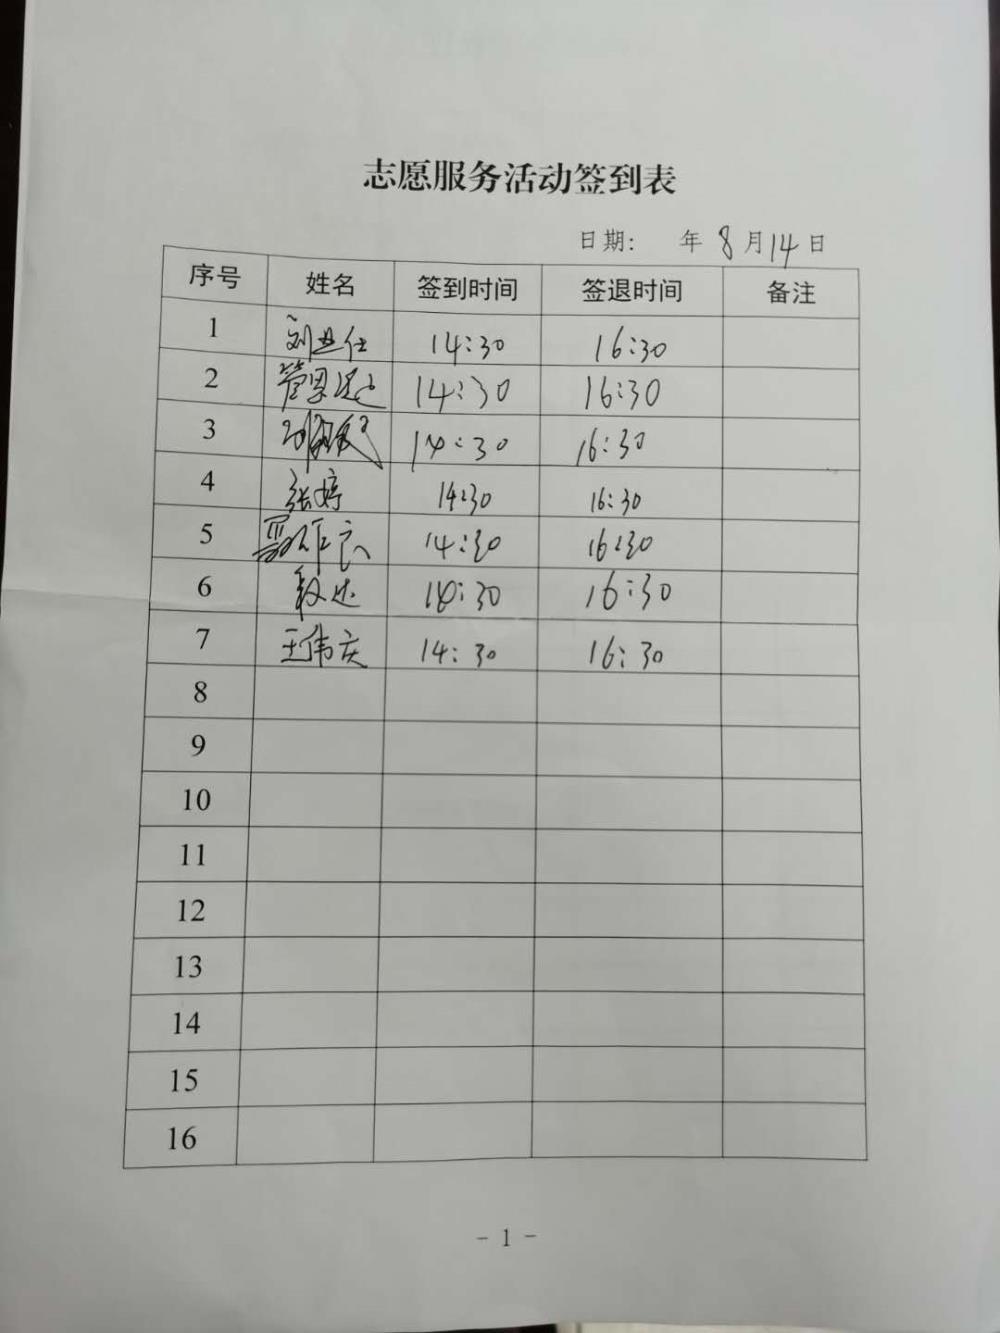 志愿服务活动签到表
日期: 年 8 月 14 日
序号 姓名 签到时间 签退时间 备注
1 刘业仕 14:30 16:30
2 管 14:30 16:30
3 14:30 16:30
4 张婷 14:30 16:30
5 14:30 16:30
6 段述 14:30 16:30
7 王伟庆 14:30 16:30
8
9
10
11
12
13
14
15
16
- 1 -